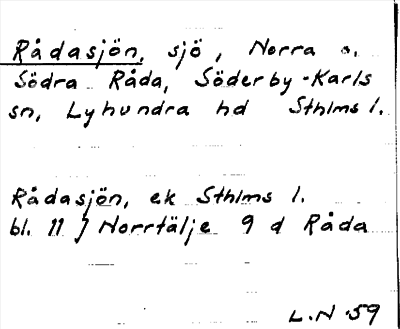 Rådasjön, sjö, Norra o.
Södra Råda, Söderby-Karls
sn, Lyhundra hd Sthlms l.
Rådasjön, ek Sthlms l.
bl. 11 J Norrtälje 9 d Råda
L.N 59